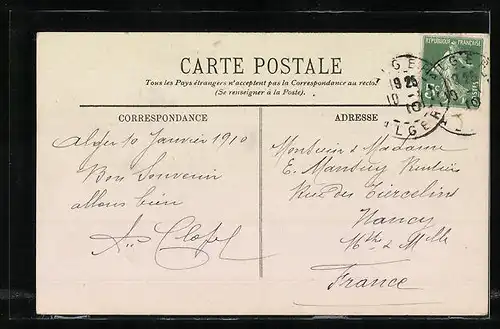 CARTE POSTALE
Tous les Pays étrangers n'acceptent pas la Correspondance au recto
(Se renseigner à la Poste).
REPUBLIQUE FRANÇAISE
ALGER
19 25
10
10
ALGER
CORRESPONDANCE
Alger 10 Janvier 1910
Bon Souvenir
allons bien
ADRESSE
Monsieur & Madame
E. Rentier
Rue des Tiercelins
Nancy
Mthe & Mlle
France